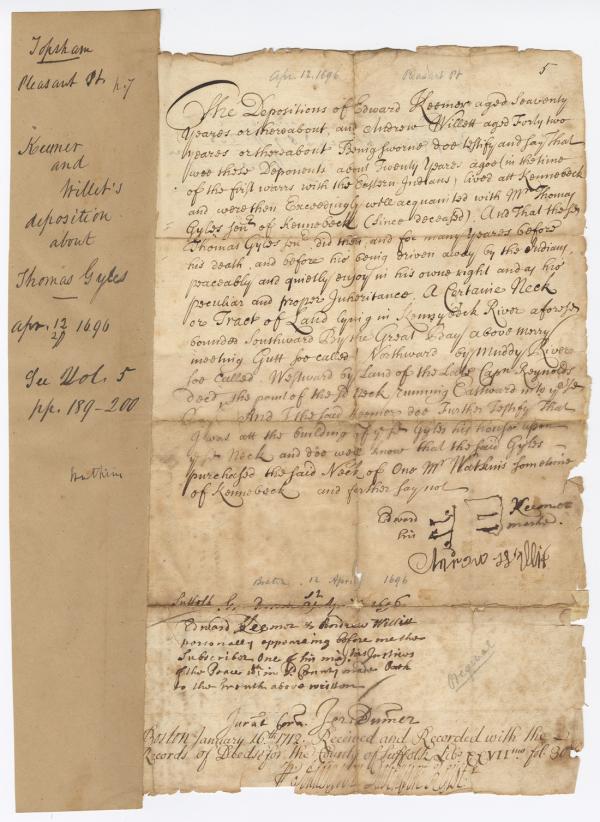 Topsham
Pleasant Pt.
Keemer
and
Willet's
deposition
about
Thomas Gyles
Apr. 12 1696
See Vol. 5
pp. 189-200
Watkins
Apr. 12. 1696
Pleasant Pt
5
The Depositions of Edward Keemer aged Seaventy
Yeares or thereabout, and Andrew Willett aged Forty two
yeares or thereabout Being sworne doe testify and say That
wee these Deponents about Twenty Yeares agoe (in the time
of the first warrs with the Eastern Indians) lived att Kennebeck
and were then Exceedingly well acquainted with Mr. Thomas
Gyles senr. of Kennebeck (since deceased). And That the sd
Thomas Gyles senr. did then, and for many yeares before
his death, and before his being driven away by the Indians,
peaceably and quietly enjoy in his owne right and as his
peculiar and proper Inheritance, A Certaine Neck
or Tract of Land lying in Kennebeck River aforesd
bounded Southward By the Great Bay above merry
meeting Gutt soe called Northward by Muddy River
soe Called. Westward by Land of the Late Capn. Reynolds
decd, the point of the sd Neck running Eastward into ye sd
Bay And I the said Keemer doe Further Testify That
I was att the building of ye sd Gyles his house upon
ye sd Neck and doe well know that the said Gyles
purchased the said Neck of One Mr Watkins sometime
of Kennebeck and further say not
Edward Keemer
his marke.
Andrew Willit
Boston 12 April 1696
Suffolk 1696
Edward Keemer & Andrew Willitt
personally appearing before me the
Subscriber One of his majties Justices
of the Peace in sd County made Oath
to the truth above written
Jurat Cora. Jer: Dumer
Original
Boston January 16th 1712. Received and Recorded with the
Records of Deeds for the County of Suffolk Lib. XXVII mo. fol. 30